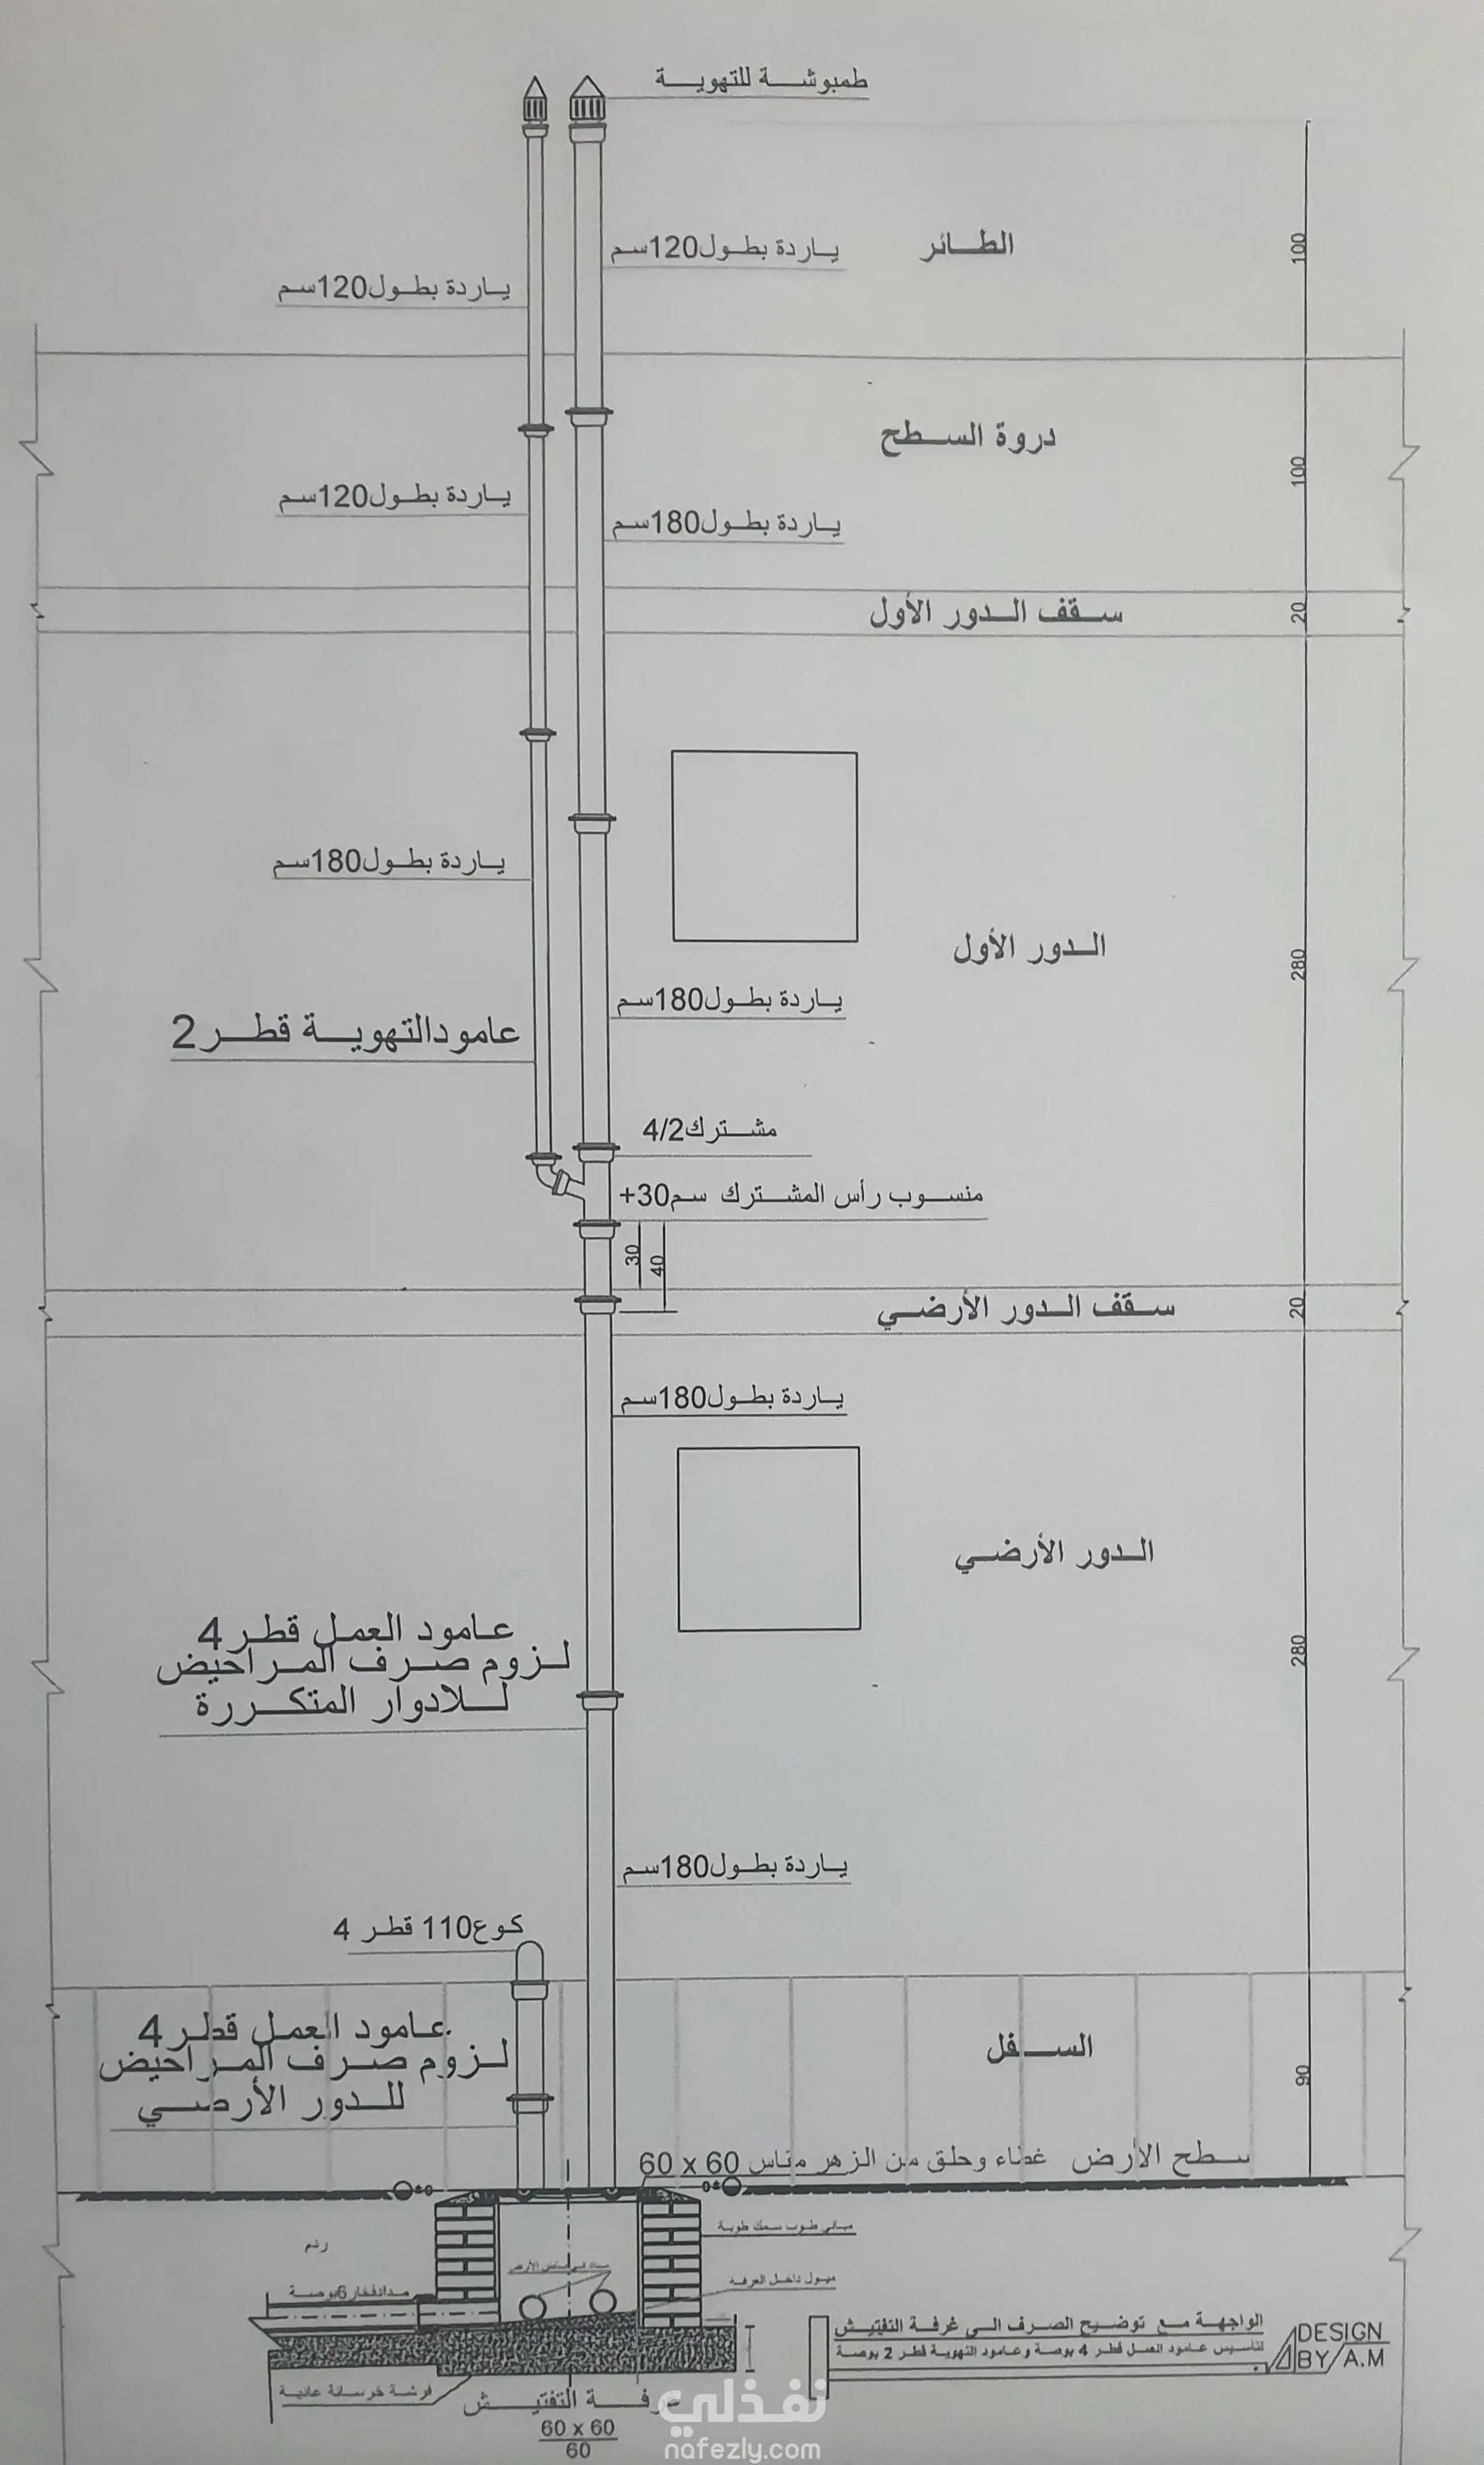 طمبوشة للتهوية
الطائر
100
ياردة بطول120سم
ياردة بطول120سم
دروة السطح
100
ياردة بطول120سم
ياردة بطول180سم
سقف الدور الأول
20
ياردة بطول180سم
الدور الأول
280
ياردة بطول180سم
عامودالتهوية قطر2
مشترك4/2
منسوب رأس المشترك سم30+
30
40
سقف الدور الأرضي
20
ياردة بطول180سم
الدور الأرضي
280
عامود العمل قطر4
لزوم صرف المراحيض
للادوار المتكررة
ياردة بطول180سم
كوع110 قطر 4
عامود العمل قطر4
لزوم صرف المراحيض
للدور الأرضي
السفل
90
سطح الأرض
غطاء وحلق من الزهر مقاس 60 x 60
ردم
مباني طوب سمك طوبة
ميول داخل الغرفة
مدادفخار6بوصة
فرشة خرسانة عادية
غرفة التفتيش
60 x 60
60
الواجهة مع توضيح الصرف الى غرفة التفتيش
لتأسيس عامود العمل قطر 4 بوصة وعامود التهوية قطر 2 بوصة
DESIGN
BY/A.M
نفذلي
nafezly.com